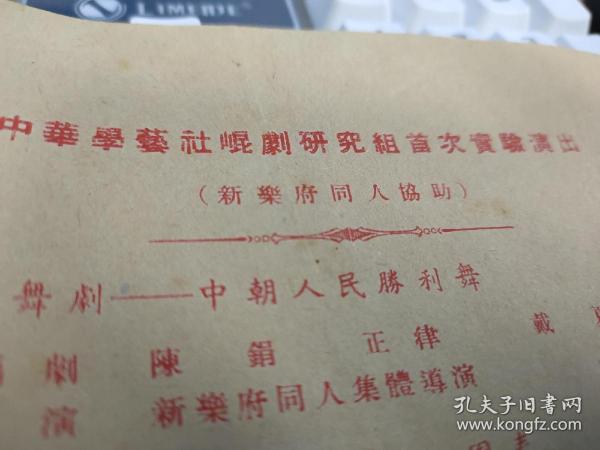 LIMERIE
中華學藝社崐劇研究組首次實驗演出
（新樂府同人協助）
舞劇——中朝人民勝利舞
劇 陳 鎖 正律 戴
演 新樂府同人集體導演
孔夫子旧书网
www.kongfz.com